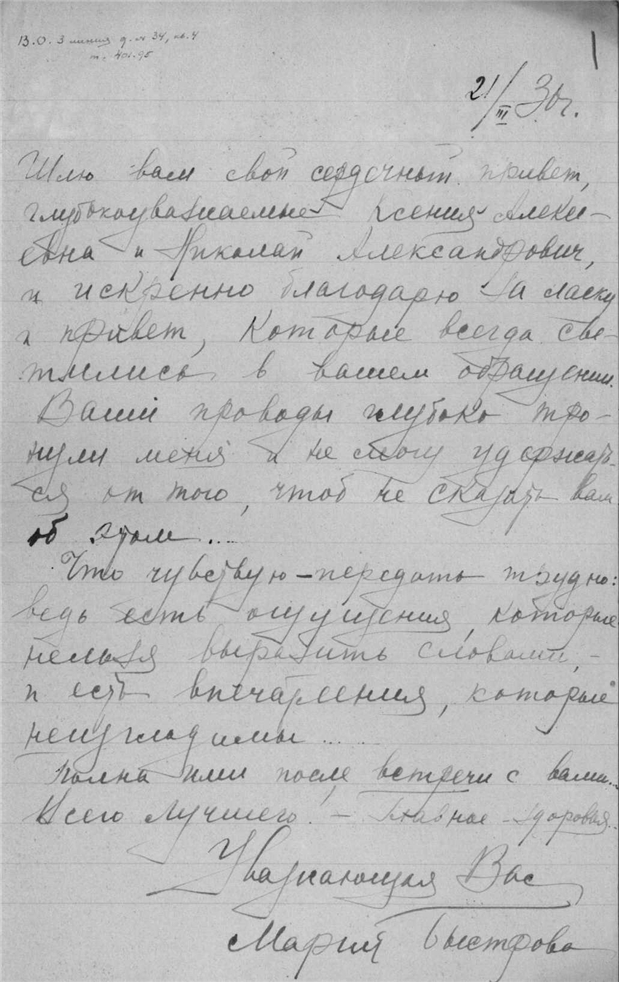 В.О. 3 линия д. № 34, кв. 4
т. 401.95
1
21/III 30 г.
Шлю вам свой сердечный привет,
глубокоуважаемые Ксения Алексе-
евна и Николай Александрович,
и искренно благодарю за ласку
и привет, которые всегда све-
тились в вашем обращении.
Ваши проводы глубоко тро-
нули меня и не могу удержать-
ся от того, чтоб не сказать вам
об этом....
Что чувствую – передать трудно:
ведь есть ощущения, которые
нельзя выразить словами, –
и есть впечатления, которые
неизгладимы.....
Полна ими после встречи с вами..
Всего лучшего! – Главное – здоровья..
Уважающая Вас
Мария Быстрова